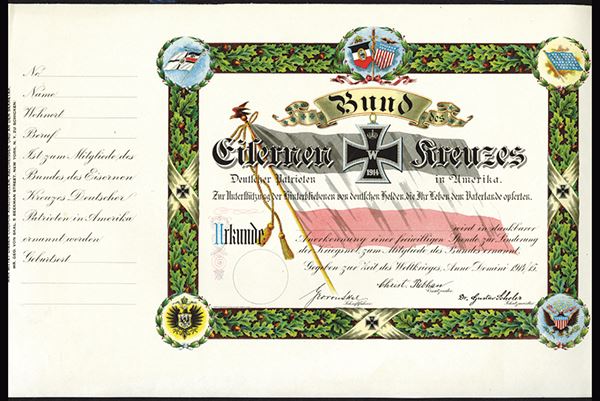 No.
Name
Wohnort
Beruf
Ist zum Mitgliede des
Bundes des Eisernen
Kreuzes Deutscher
Patrioten in Amerika
ernannt worden
Geburtsort
Bund des
Eisernen Kreuzes
W
1914
Deutscher Patrioten in Amerika.
Zur Unterstützung der Hinterbliebenen von deutschen Helden, die Ihr Leben dem Vaterlande opferten.
Urkunde
wird in dankbarer
Anerkennung einer freiwilligen Spende zur Linderung
der Kriegsnot, zum Mitglied des Bundes ernannt.
Gegeben zur Zeit des Weltkrieges, Anno Domini 1914/15.
Dr. Gustav Scholer